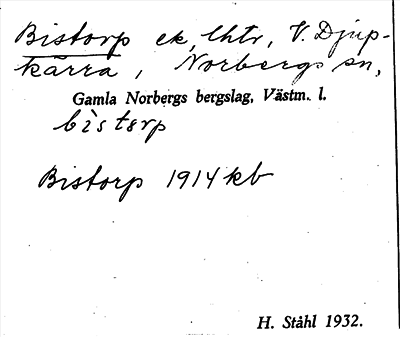 Bistorp ek, lhtr, V. Djup-
kärra, Norbergs sn,
Gamla Norbergs bergslag, Västm. l.
bìstǝrp
Bistorp 1914 kb
H. Ståhl 1932.